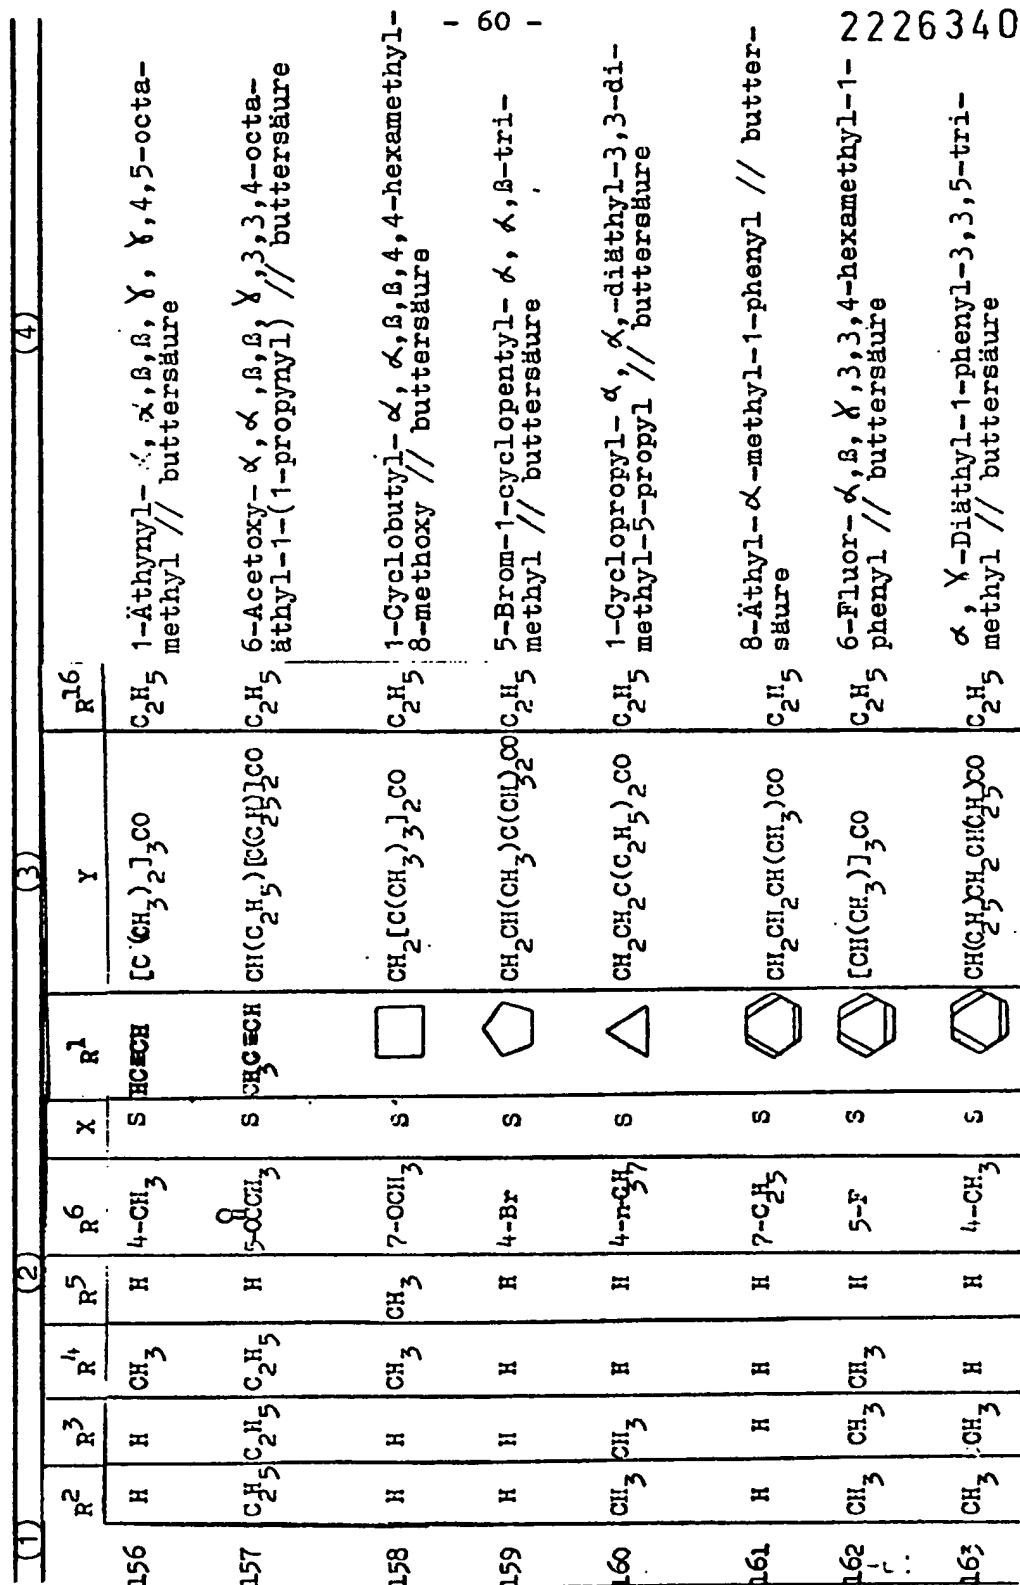 - 60 -
2226340
(1) (2) (3) (4)
R² R³ R⁴ R⁵ R⁶ X R¹ Y R¹⁶
156 H H CH₃ H 4-CH₃ S HC≡CH [C(CH₃)₂]₃CO C₂H₅ 1-Äthynyl-α, α,ß,ß, γ, γ,4,5-octa-
methyl // buttersäure
157 C₂H₅ C₂H₅ C₂H₅ H 5-OCCH₃ S CH₃C≡CH CH(C₂H₅)[C(C₂H₅)]₂CO C₂H₅ 6-Acetoxy-α, α,ß,ß, γ,3,3,4-octa-
O
äthyl-1-(1-propynyl) // buttersäure
158 H H CH₃ CH₃ 7-OCH₃ S CH₂[C(CH₃)₃]₂CO C₂H₅ 1-Cyclobutyl-α, α,ß,ß,4,4-hexamethyl-
8-methoxy // buttersäure
159 H H H H 4-Br S CH₂CH(CH₃)C(CH₃)₂CO C₂H₅ 5-Brom-1-cyclopentyl-α, α,ß-tri-
methyl // buttersäure
160 CH₃ CH₃ H H 4-n-C₃H₇ S CH₂CH₂C(C₂H₅)₂CO C₂H₅ 1-Cyclopropyl-α, α,-diäthyl-3,3-di-
methyl-5-propyl // buttersäure
161 H H H H 7-C₂H₅ S CH₂CH₂CH(CH₃)CO C₂H₅ 8-Äthyl-α-methyl-1-phenyl // butter-
säure
162 CH₃ CH₃ CH₃ H 5-F S [CH(CH₃)]₃CO C₂H₅ 6-Fluor-α,ß, γ,3,3,4-hexamethyl-1-
phenyl // buttersäure
163 CH₃ CH₃ H H 4-CH₃ S CH(C₂H₅)CH₂CH(C₂H₅)CO C₂H₅ α, γ-Diäthyl-1-phenyl-3,3,5-tri-
methyl // buttersäure